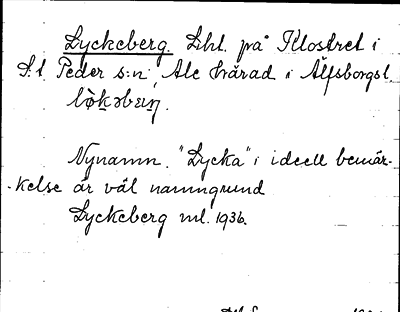 Lyckeberg. Lht. på Klostret i
S:t Peder s:n Ale härad i Älfsborgsl.
Nynamn. "Lycka" i ideell bemär-
-kelse är väl namngrund
Lyckeberg ml. 1936.